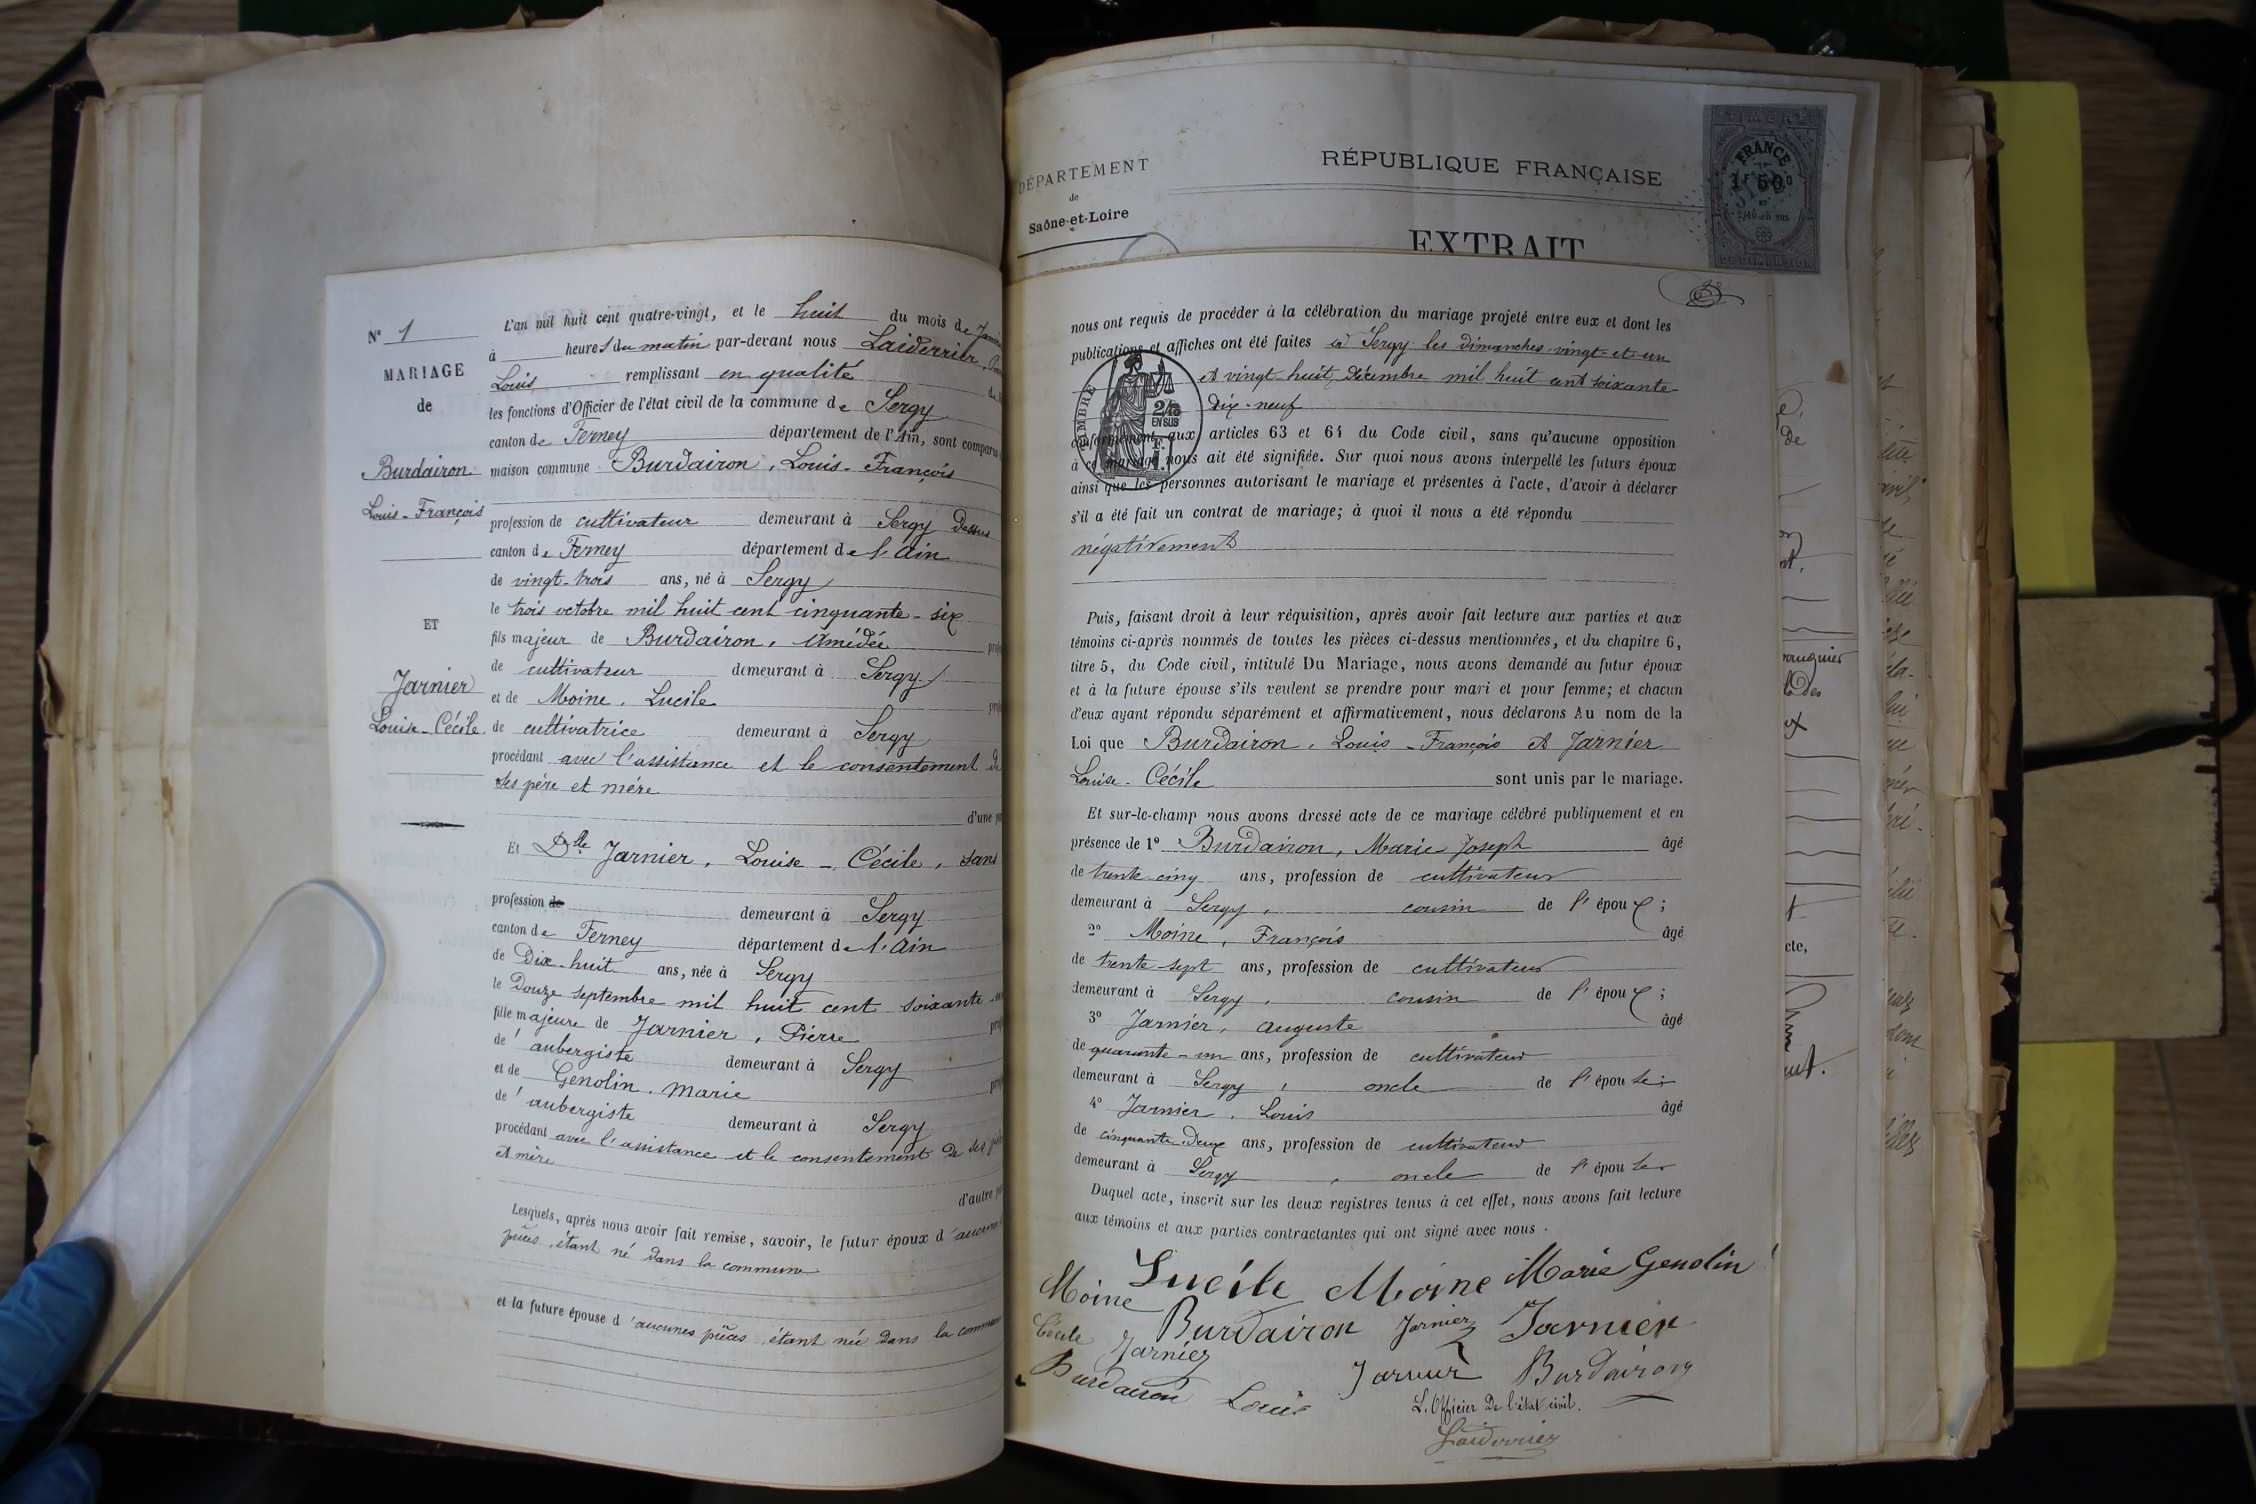 N° 1
MARIAGE
de
Burdairon
Louis-François
ET
Jarnier
Louise-Cécile.
L'an mil huit cent quatre-vingt, et le huit du mois de
à heures du matin par-devant nous Laiderrier,
Louis remplissant en qualité
les fonctions d'Officier de l'état civil de la commune de Sergy
canton de Ferney département de l'Ain, sont comparus
maison commune Burdairon, Louis-François
profession de cultivateur demeurant à Sergy Dessus
canton de Ferney département de l'Ain
de vingt-trois ans, né à Sergy
le trois octobre mil huit cent cinquante-six
fils majeur de Burdairon, Amédée
de cultivateur demeurant à Sergy
et de Moine, Lucile
de cultivatrice demeurant à Sergy
procédant avec l'assistance et le consentement de
ses père et mère
d'une
Et Dlle Jarnier, Louise-Cécile, sans
profession de demeurant à Sergy
canton de Ferney département de l'Ain
de Dix-huit ans, née à Sergy
le Douze septembre mil huit cent soixante
fille majeure de Jarnier, Pierre
de' aubergiste demeurant à Sergy
et de Genolin, Marie
de' aubergiste demeurant à Sergy
procédant avec l'assistance et le consentement de ses
et mère
d'autre
Lesquels, après nous avoir fait remise, savoir, le futur époux d'aucunes
pièces, étant né dans la commune
et la future épouse d'aucunes pièces, étant née dans la commune
DÉPARTEMENT
de
Saône-et-Loire
RÉPUBLIQUE FRANÇAISE
EXTRAIT
TIMBRE
FRANCE
1F 50c
DE DIMENSION
nous ont requis de procéder à la célébration du mariage projeté entre eux et dont les
publications et affiches ont été faites à Sergy les dimanches vingt-et-un
et vingt-huit, Décembre mil huit cent soixante-
dix-neuf
TIMBRE
2/10
EN SUS
conformément aux articles 63 et 64 du Code civil, sans qu'aucune opposition
à ce mariage nous ait été signifiée. Sur quoi nous avons interpellé les futurs époux
ainsi que les personnes autorisant le mariage et présentes à l'acte, d'avoir à déclarer
s'il a été fait un contrat de mariage; à quoi il nous a été répondu
négativement
Puis, faisant droit à leur réquisition, après avoir fait lecture aux parties et aux
témoins ci-après nommés de toutes les pièces ci-dessus mentionnées, et du chapitre 6,
titre 5, du Code civil, intitulé Du Mariage, nous avons demandé au futur époux
et à la future épouse s'ils veulent se prendre pour mari et pour femme; et chacun
d'eux ayant répondu séparément et affirmativement, nous déclarons Au nom de la
Loi que Burdairon, Louis-François et Jarnier
Louise-Cécile sont unis par le mariage.
Et sur-le-champ nous avons dressé acte de ce mariage célébré publiquement et en
présence de 1° Burdairon, Marie Joseph âgé
de trente-cinq ans, profession de cultivateur
demeurant à Sergy, cousin de l'époux;
2° Moine, François âgé
de trente-sept ans, profession de cultivateur
demeurant à Sergy, cousin de l'époux;
3° Jarnier, Auguste âgé
de quarante-un ans, profession de cultivateur
demeurant à Sergy, oncle de l'épouse;
4° Jarnier, Louis âgé
de cinquante-deux ans, profession de cultivateur
demeurant à Sergy, oncle de l'épouse
Duquel acte, inscrit sur les deux registres tenus à cet effet, nous avons fait lecture
aux témoins et aux parties contractantes qui ont signé avec nous.
Moine Lucile Moine Marie Genolin
Cécile Jarnier Burdairon Jarnier Jarnier
Burdairon Louis Jarnier Burdairon
L'Officier de l'état civil.
Laiderrier